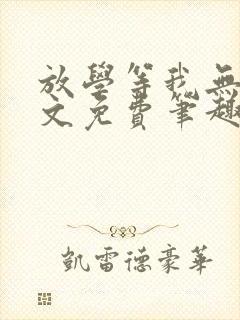 放學等我無
文免費筆趣
凱雷德豪華